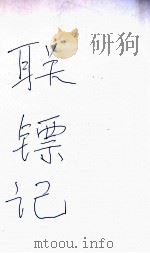 研狗
联
镖
记
mtoou.info